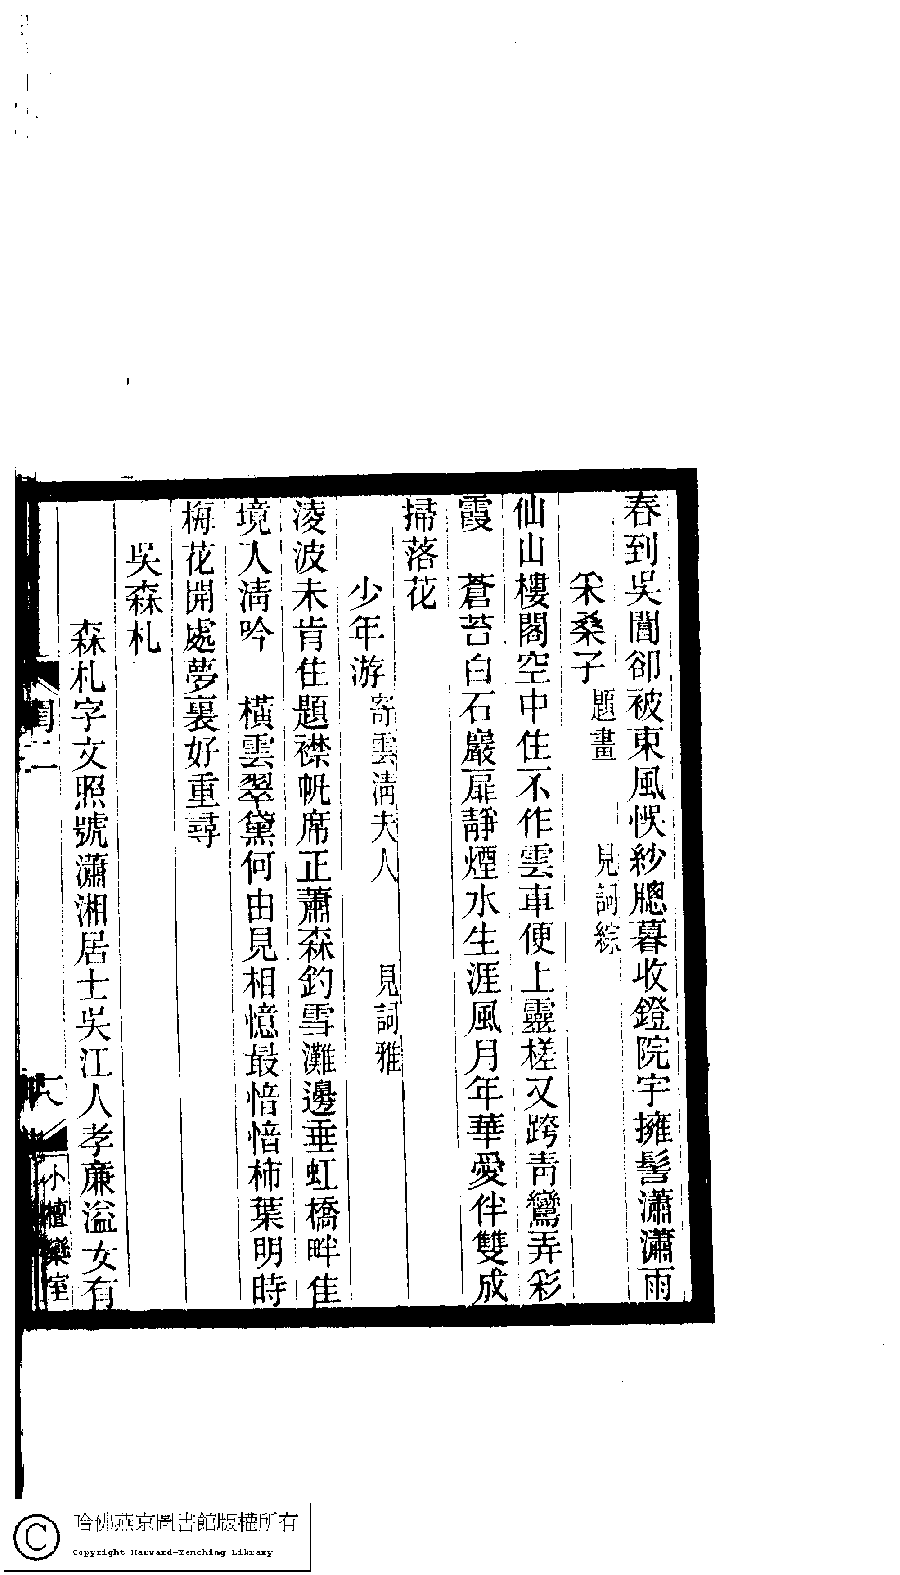 春到吳閶卻被東風悞紗牕暮收鐙院宇擁髻瀟瀟雨
采桑子 題畫 見詞綜
仙山樓閣空中住不作雲車便上靈槎又跨青鸞弄彩
霞 蒼苔白石巖扉靜煙水生涯風月年華愛伴雙成
掃落花
少年游 寄雲清夫人 見詞雅
淩波未肯住題襟帆席正蕭森釣雪灘邊垂虹橋畔佳
境人清吟 橫雲翠黛何由見相憶最愔愔柿葉明時
梅花開處夢裏好重尋
吳森札
森札字文照號瀟湘居士吳江人孝廉溢女有
閨二
小檀欒室
哈佛燕京圖書館版權所有
Copyright Harvard-Yenching Library